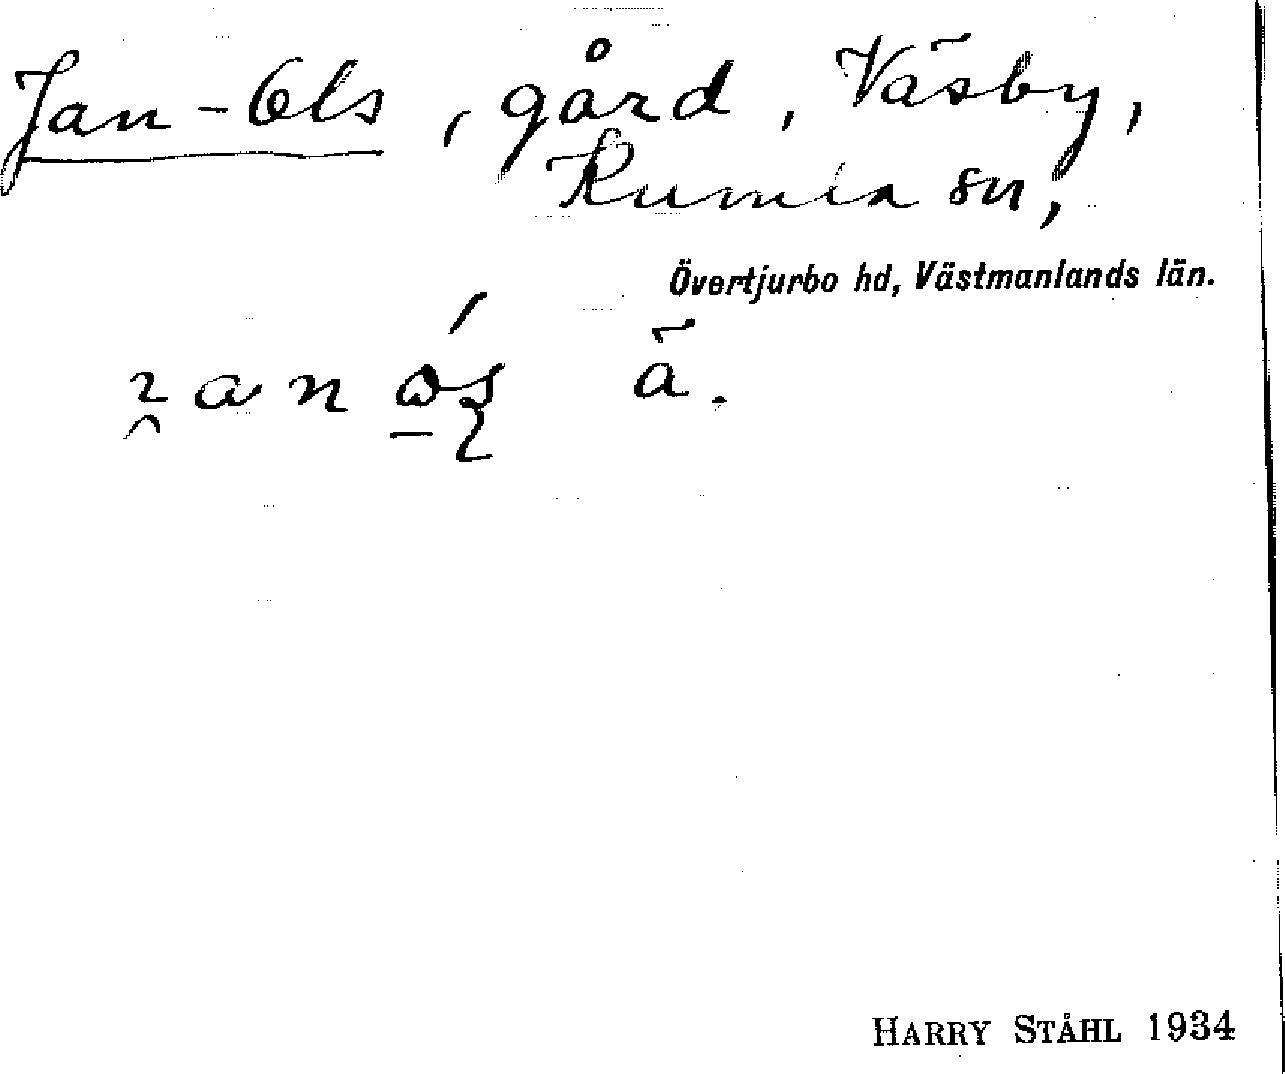 Jan-Ols, gård, Väsby,
Kumla sn,
Övertjurbo hd, Västmanlands län.
ä.
HARRY STÅHL 1934